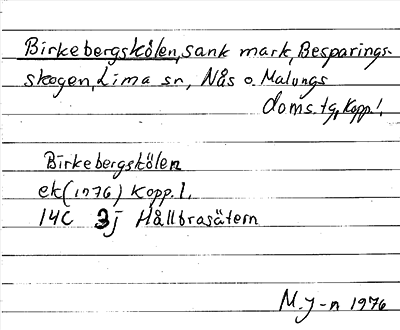 Birkebergskölen, sank mark, Besparings-
skogen, Lima sn, Nås o. Malungs
doms. tg, Kopp. l.
Birkebergskölen
ek (1976) Kopp. l.
14C 3j Hållbrasätern
M. J-n 1976